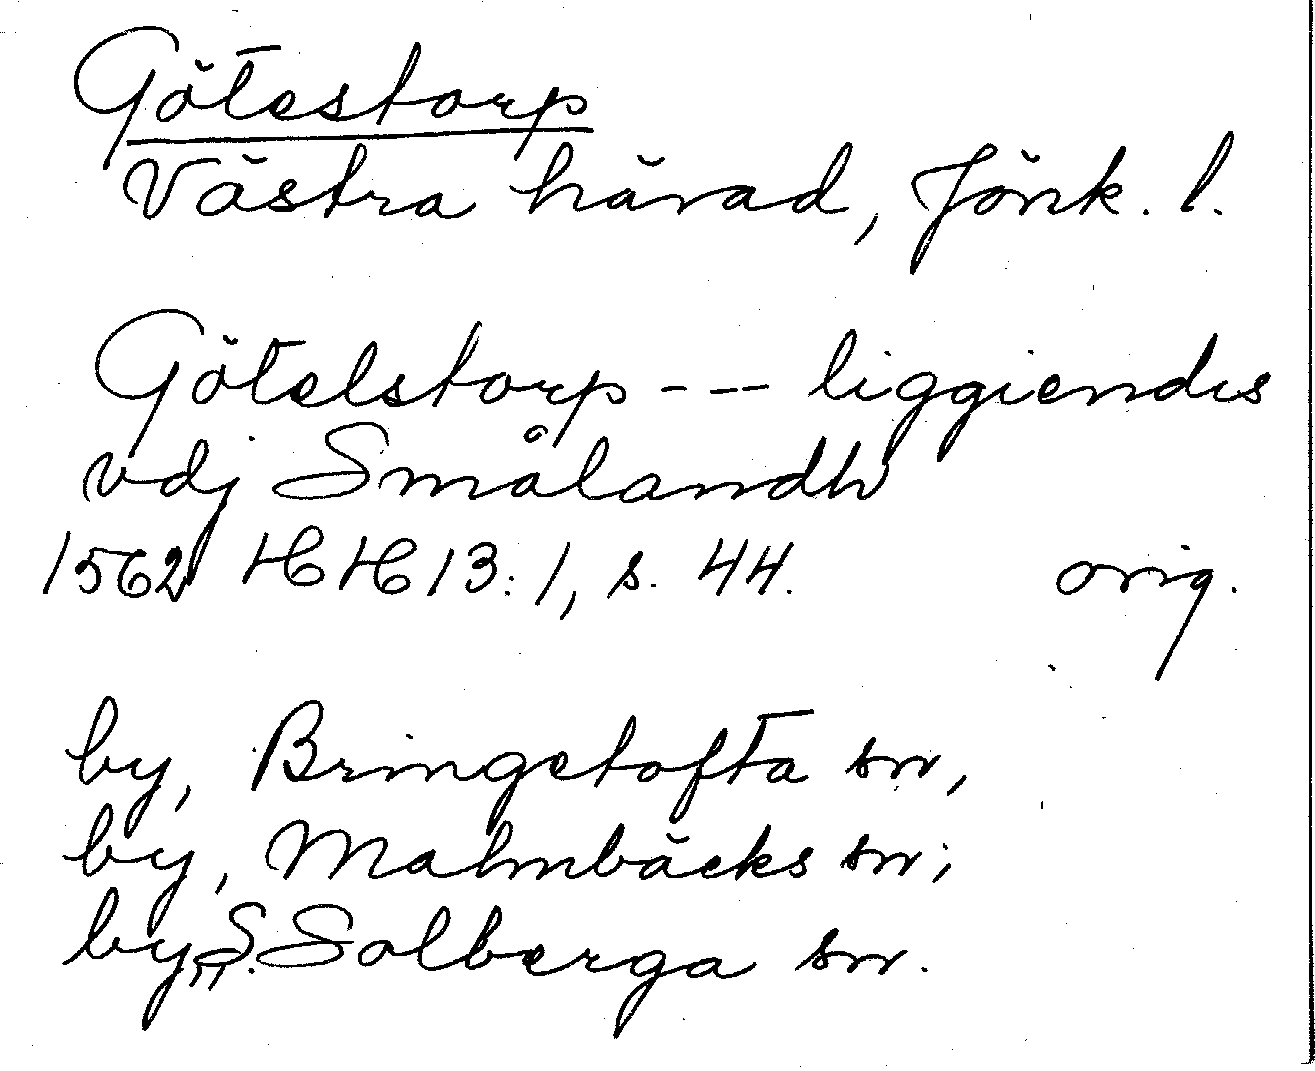 Götestorp
Västra härad, Jönk. l.
Götelstorp --- liggiendis
vdj Smålandh
1562 HH 13:1, s. 44. orig.
by, Bringetofta sn,
by, Malmbäcks sn;
by, S. Solberga sn.